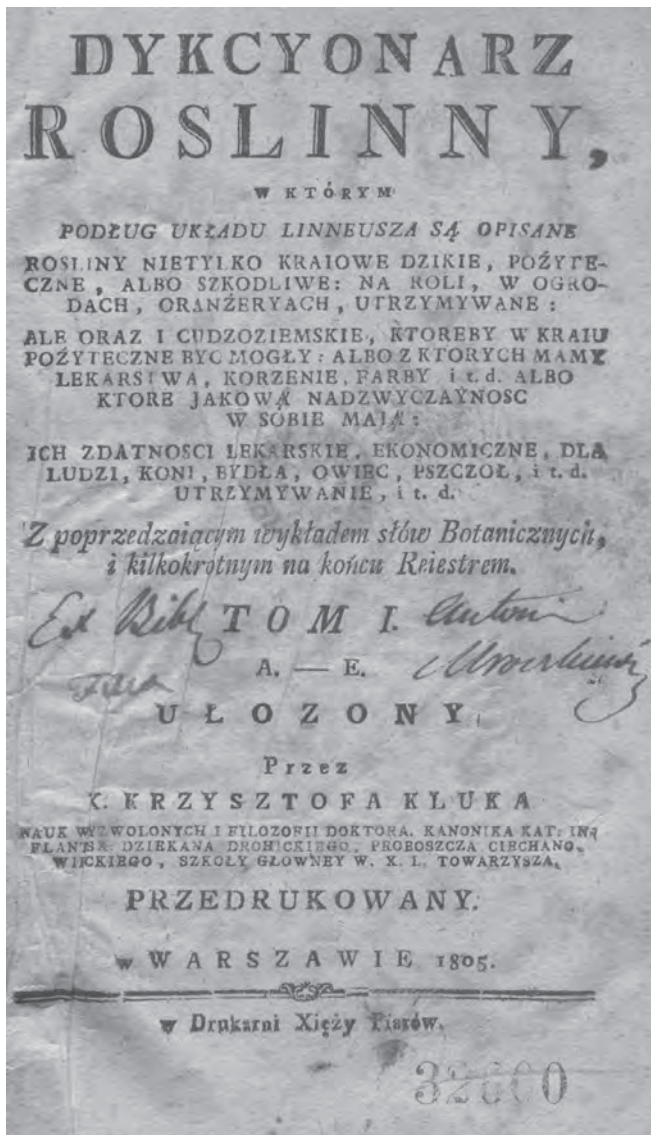 DYKCYONARZ
ROSLINNY,
W KTÓRYM
PODŁUG UKŁADU LINNEUSZA SĄ OPISANE
ROSLINY NIETYLKO KRAIOWE DZIKIE, POŻYTE-
CZNE, ALBO SZKODLIWE: NA ROLI, W OGRO-
DACH, ORANŻERYACH, UTRZYMYWANE:
ALE ORAZ I CUDZOZIEMSKIE, KTOREBY W KRAIU
POŻYTECZNE BYC MOGŁY: ALBO Z KTORYCH MAMY
LEKARSTWA, KORZENIE, FARBY i t. d. ALBO
KTORE JAKOWĄ NADZWYCZAYNOSC
W SOBIE MAJĄ:
ICH ZDATNOSCI LEKARSKIE, EKONOMICZNE, DLA
LUDZI, KONI, BYDŁA, OWIEC, PSZCZOŁ, i t. d.
UTRZYMYWANIE, i t. d.
Z poprzedzaiącym wykładem słów Botanicznych,
i kilkokrotnym na końcu Reiestrem.
Ex Bibl TOM I. Antoni
A. — E.
UŁOZONY
Przez
X. KRZYSZTOFA KLUKA
NAUK WYZWOLONYCH I FILOZOFII DOKTORA. KANONIKA KAT: INF
FLANTSK: DZIEKANA DROHICKIEGO, PROBOSZCZA CIECHANO-
WIECKIEGO, SZKOŁY GŁOWNEY W. X. L. TOWARZYSZA,
PRZEDRUKOWANY.
w WARSZAWIE 1805.
w Drukarni Xięży Piarów.
32600